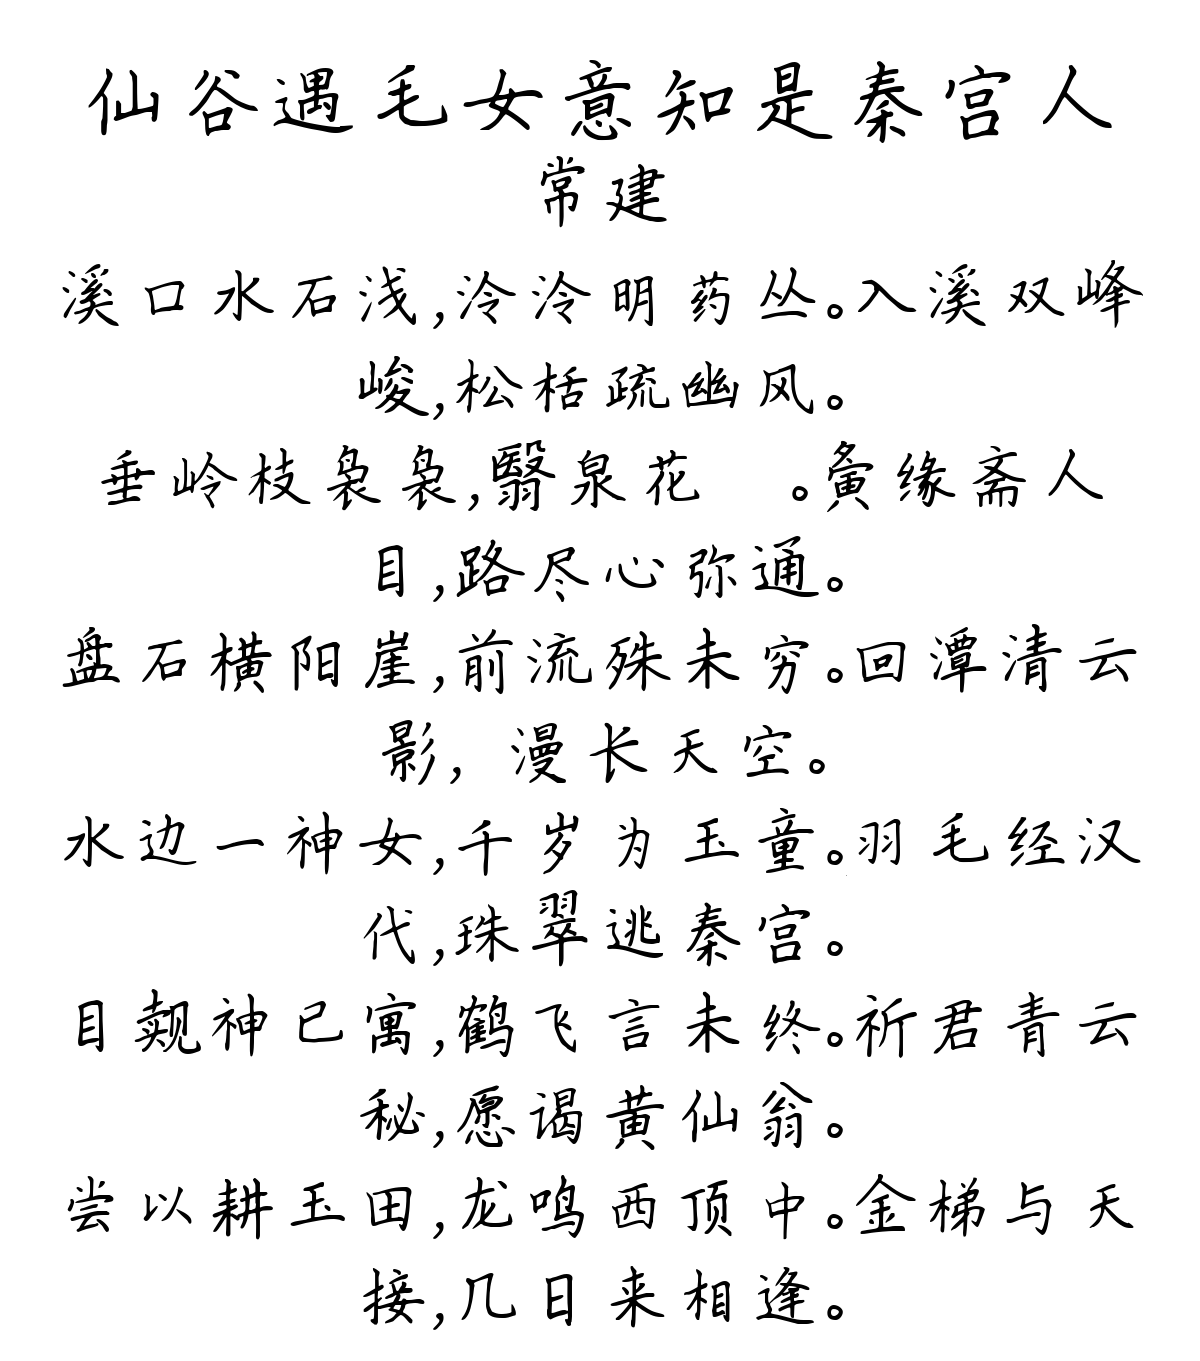 仙谷遇毛女意知是秦宫人
常建
溪口水石浅,泠泠明药丛。入溪双峰
峻,松栝疏幽风。
垂岭枝袅袅,翳泉花　。夤缘斋人
目,路尽心弥通。
盘石横阳崖,前流殊未穷。回潭清云
影,漫长天空。
水边一神女,千岁为玉童。羽毛经汉
代,珠翠逃秦宫。
目觌神已寓,鹤飞言未终。祈君青云
秘,愿谒黄仙翁。
尝以耕玉田,龙鸣西顶中。金梯与天
接,几日来相逢。